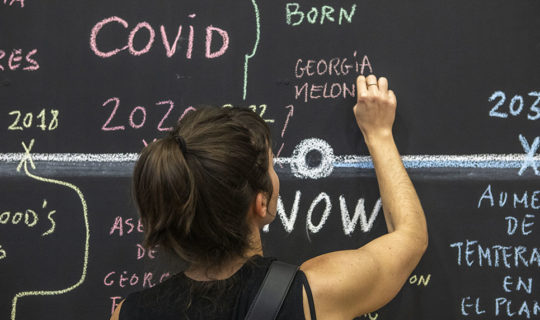 COViD
BORN
RES
GEORGiA
MELON
2018
2020
22
203
NOW
OOD'S
ASE
DE
GEORG
ON
AUME
DE
TEMTERA
EN
EL PLAN